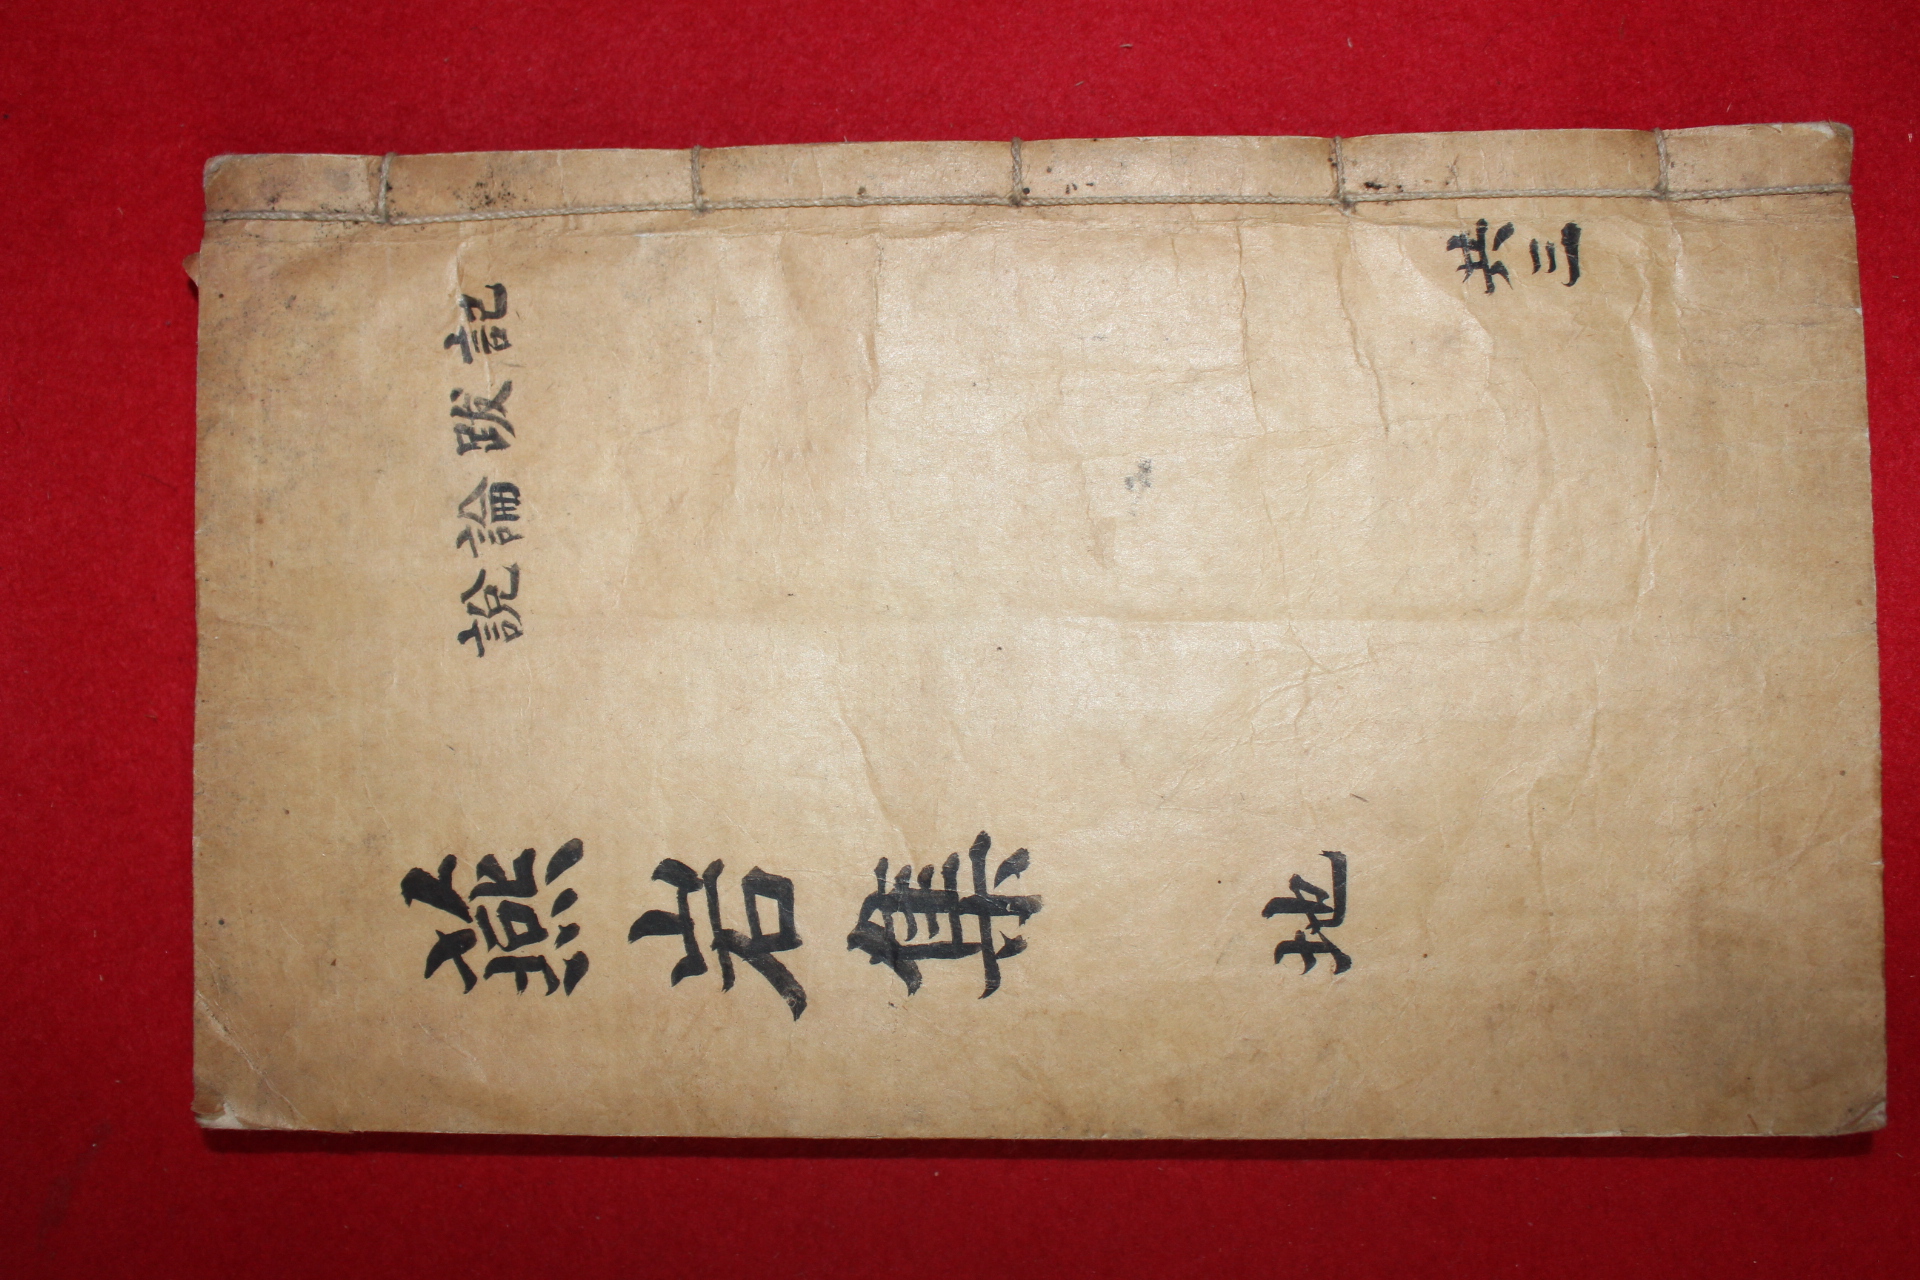 共三
記跋論說
燕岩集 地